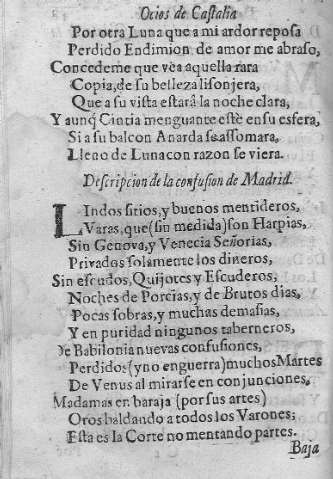 Ocios de Castalia
Por otra Luna que a mi ardor reposa
Perdido Endimion de amor me abraso,
Concedeme que vea aquella rara
Copia, de su belleza lisonjera,
Que a su vista estarâ la noche clara,
Y aunq̃ Cintia menguante estè en su esfera,
Si a su balcon Anarda se assomara,
Lleno de Luna con razon se viera.
Descripcion de la confusion de Madrid.
LIndos sitios, y buenos mentideros,
Varas, que (sin medida) son Harpias,
Sin Genova, y Venecia Señorias,
Privados solamente los dineros,
Sin escudos, Quijotes y Escuderos,
Noches de Porcias, y de Brutos dias,
Pocas sobras, y muchas demasias,
Y en puridad ningunos taberneros,
de Babilonia nuevas confusiones,
Perdidos (y no en guerra) muchos Martes
De Venus al mirarse en conjunciones,
Madamas en baraja (por sus artes)
Oros baldando a todos los Varones;
Esta es la Corte no mentando partes.
Baja